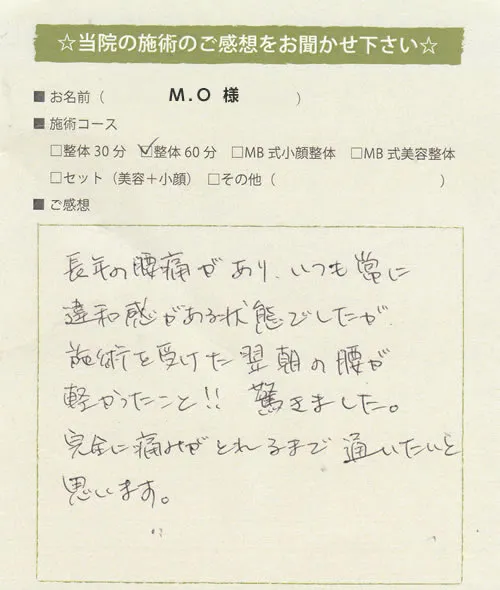 ☆当院の施術のご感想をお聞かせ下さい☆
■お名前（ M.O 様 ）
■施術コース
□整体30分 ☑整体60分 □MB式小顔整体 □MB式美容整体
□セット（美容＋小顔） □その他（ ）
■ご感想
長年の腰痛があり、いつも常に
違和感がある状態でしたが
施術を受けた翌朝の腰が
軽かったこと!! 驚きました。
完全に痛みがとれるまで通いたいと
思います。